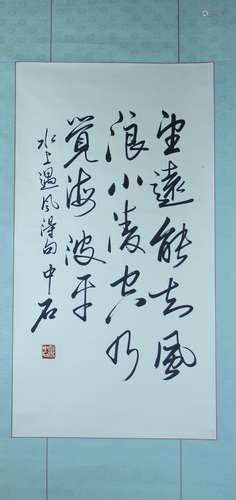 望远能知风
浪小凌空乃
觉海波平
水上遇风得句 中石